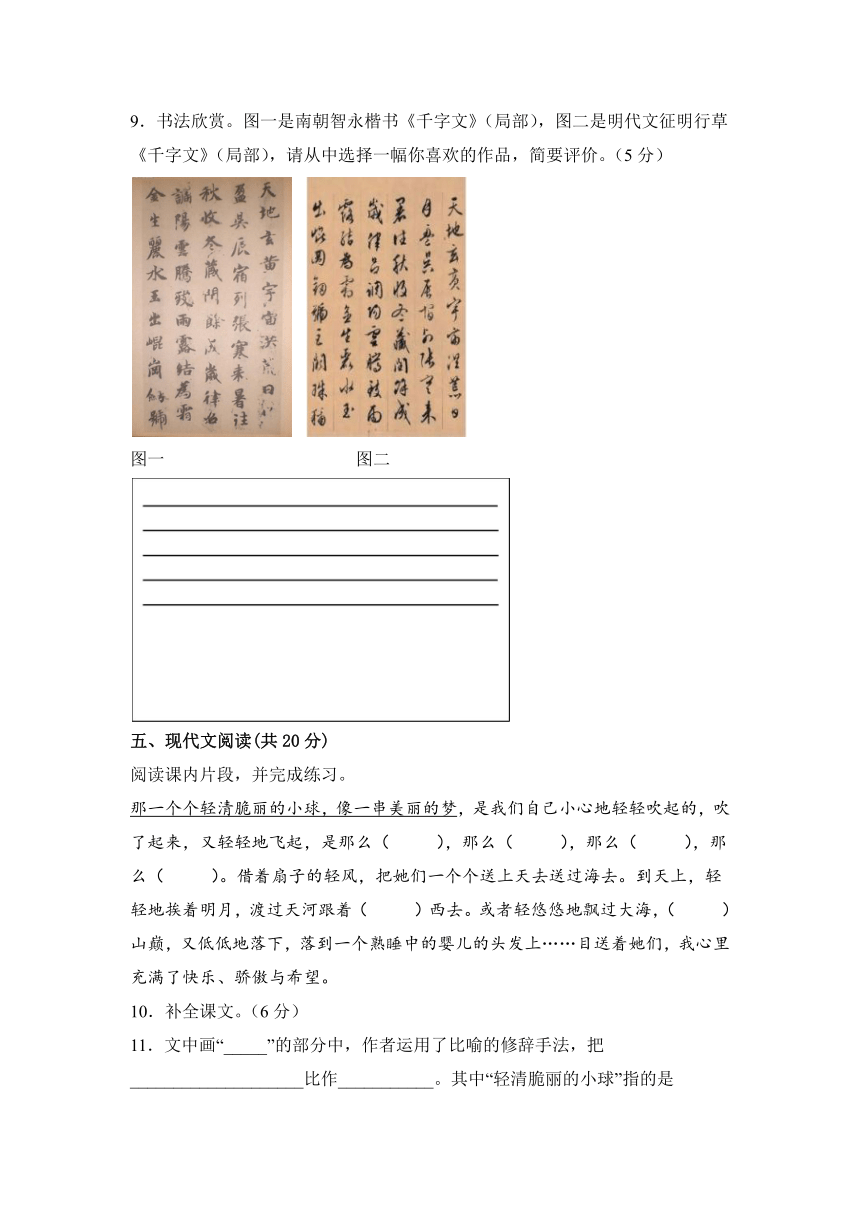 9．书法欣赏。图一是南朝智永楷书《千字文》（局部），图二是明代文征明行草
《千字文》（局部），请从中选择一幅你喜欢的作品，简要评价。（5 分）
天地玄黄宇宙洪荒日
盈昃辰宿列張寒来暑往
秋收冬藏閏餘成歲律吕
調陽雲騰致雨露結為霜
金生麗水玉出崐崗劍號
天地玄黄宇宙洪荒日
月盈昃辰宿列張寒来
暑往秋收冬藏閏餘成
歲律吕調陽雲騰致雨
露結為霜金生麗水玉
出崐岡劍號巨闕珠稱
图一
图二
五、现代文阅读(共 20 分)
阅读课内片段，并完成练习。
那一个个轻清脆丽的小球，像一串美丽的梦，是我们自己小心地轻轻吹起的，吹
了起来，又轻轻地飞起，是那么（　　），那么（　　），那么（　　），那
么（　　）。借着扇子的轻风，把她们一个个送上天去送过海去。到天上，轻
轻地挨着明月，渡过天河跟着（　　）西去。或者轻悠悠地飘过大海，（　　）
山巅，又低低地落下，落到一个熟睡中的婴儿的头发上……目送着她们，我心里
充满了快乐、骄傲与希望。
10．补全课文。（6 分）
11．文中画“_____”的部分中，作者运用了比喻的修辞手法，把
____________________比作___________。其中“轻清脆丽的小球”指的是